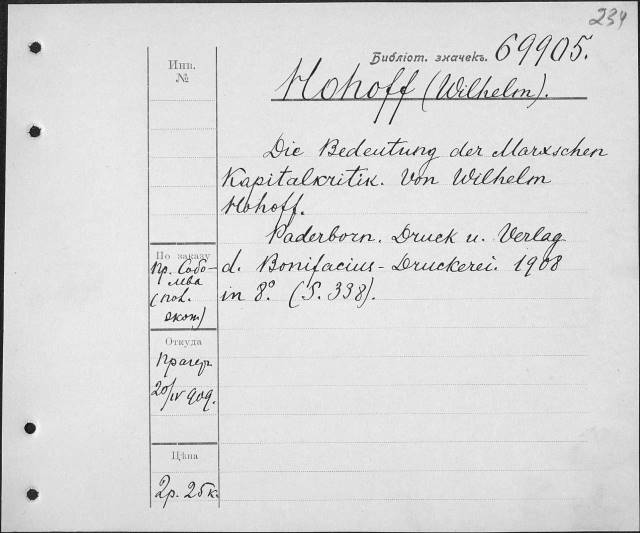 234
Библіот. значекъ. 69905.
Инв.
№
Hohoff (Wilhelm).
Die Bedeutung der Marxschen
Kapitalkritik. Von Wilhelm
Hohoff.
Paderborn. Druck u. Verlag
d. Bonifacius-Druckerei. 1908
in 8º. (S. 338).
По заказу
Пр. Собо-
лева
(пол.
экон)
Откуда
Прагеръ
20/IV 909.
Цѣна
2р. 25к.